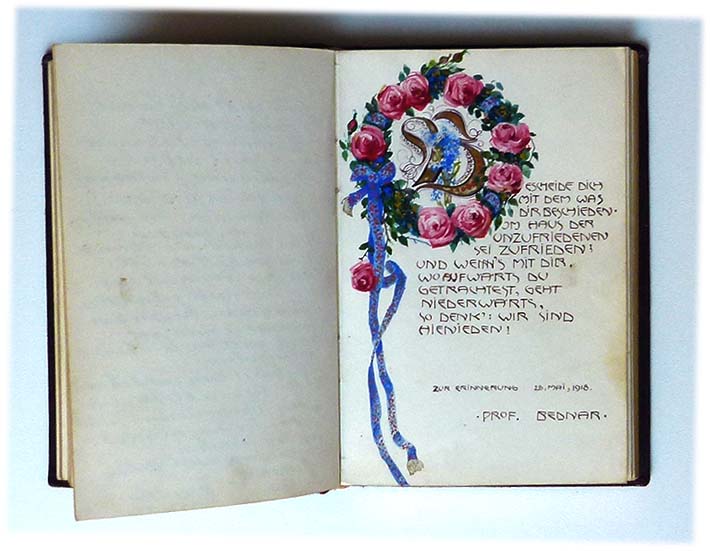 BESCHEIDE DICH
MIT DEM WAS
DIR BESCHIEDEN.
IM HAUS DER
UNZUFRIEDENEN
SEI ZUFRIEDEN!
UND WENN'S MIT DIR,
WO AUFWÄRTS DU
GETRACHTEST, GEHT
NIEDERWÄRTS,
SO DENK': WIR SIND
HIENIEDEN!
ZUR ERINNERUNG MAI, 1918.
· PROF. BEDNAR ·